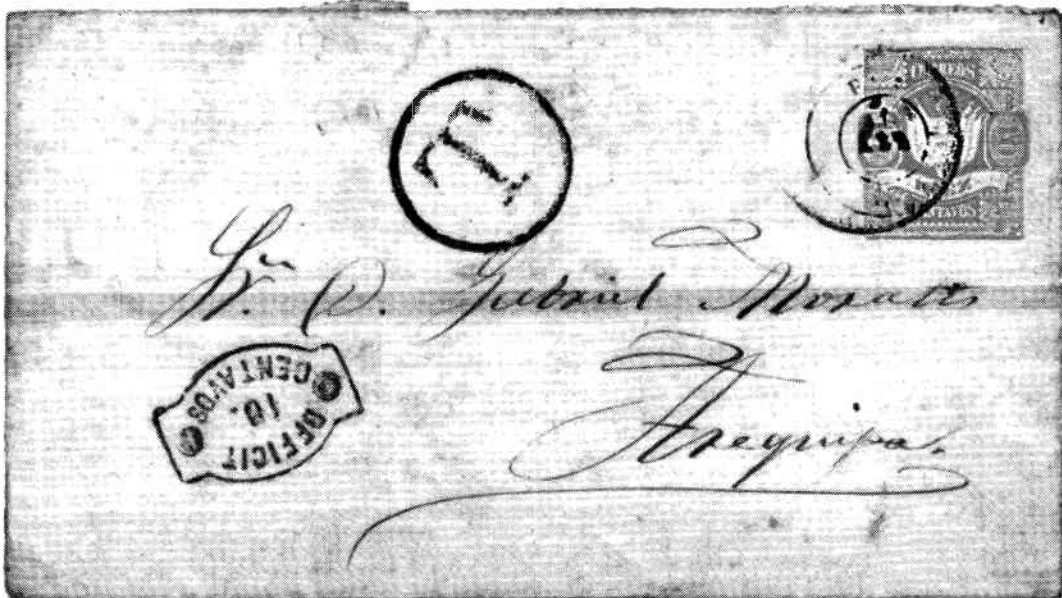 T
CENTAVOS
Sr. D. Gabriel
Arequipa.
DEFICIT
10.
CENTAVOS